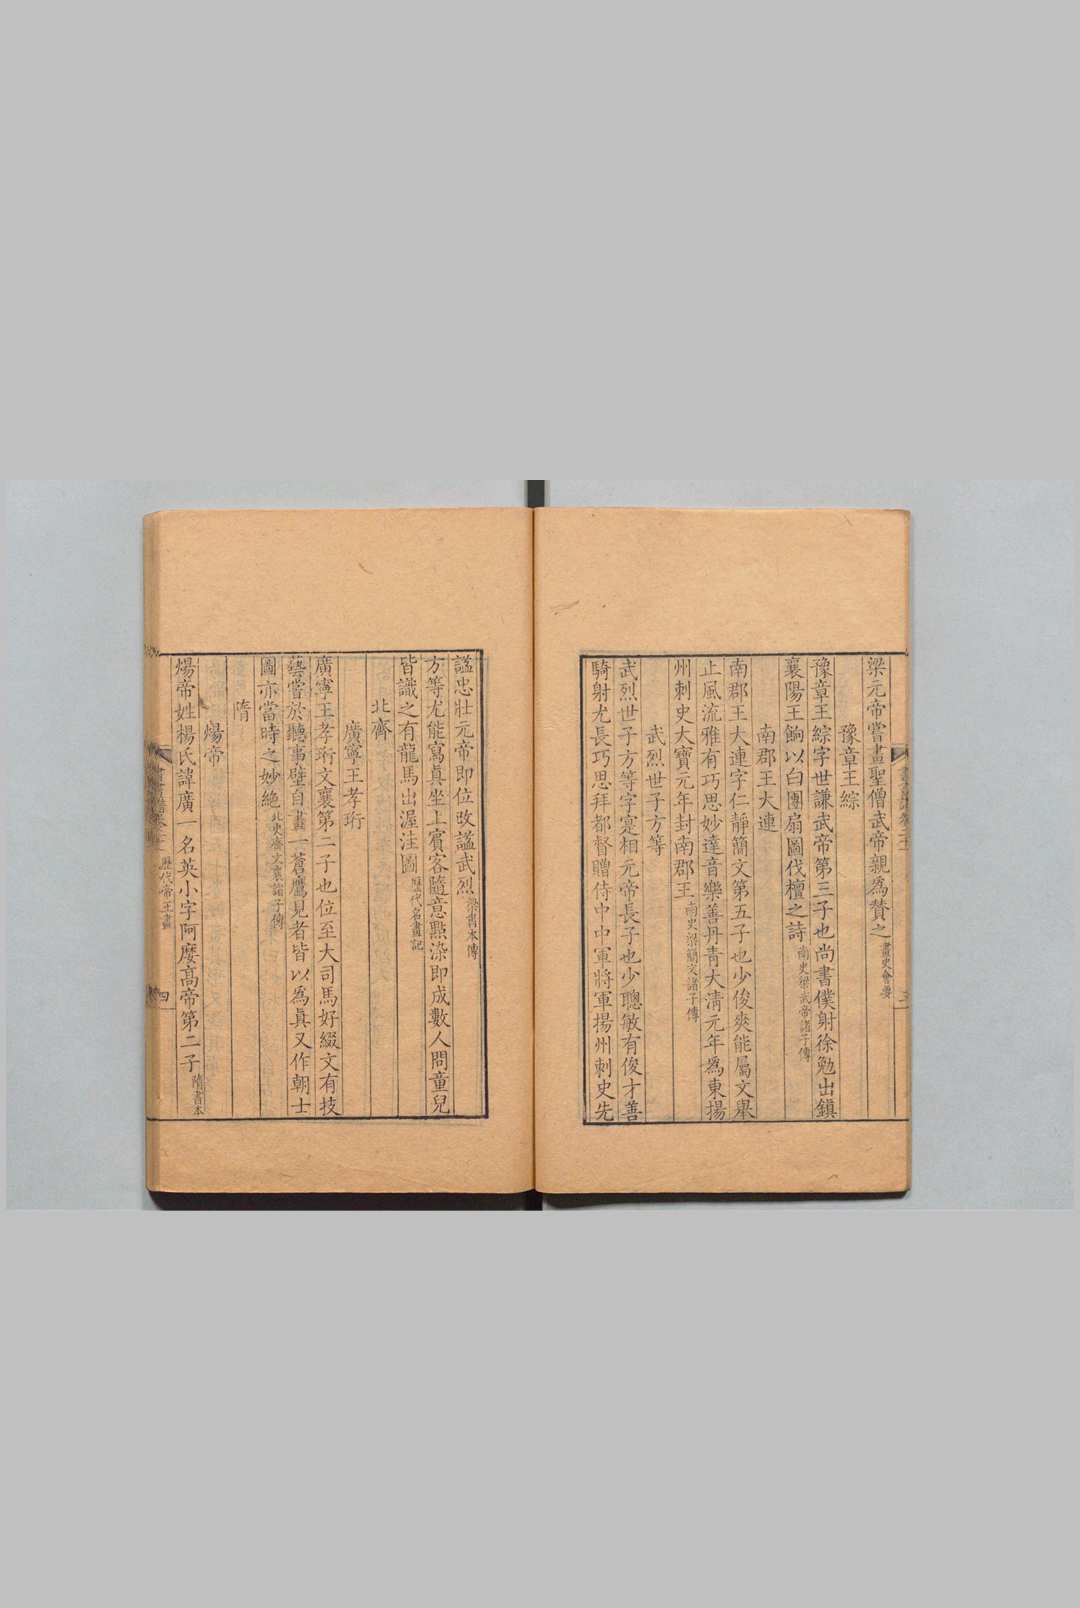 梁元帝嘗畫聖僧武帝親為贊之畫史會要
豫章王綜
豫章王綜字世謙武帝第三子也尚書僕射徐勉出鎮
襄陽王餉以白團扇圖伐檀之詩南史梁武帝諸子傳
南郡王大連
南郡王大連字仁靜簡文第五子也少俊爽能屬文舉
止風流雅有巧思妙達音樂善丹青大清元年為東揚
州刺史大寶元年封南郡王南史梁簡文諸子傳
武烈世子方等
武烈世子方等字寔相元帝長子也少聰敏有俊才善
騎射尤長巧思拜都督贈侍中中軍將軍揚州刺史先
謚忠壯元帝即位改謚武烈梁書本傳
方等尤能寫真坐上賓客隨意點染即成數人問童兒
皆識之有龍馬出渥洼圖歷代名畫記
北齊
廣寧王孝珩
廣寧王孝珩文襄第二子也位至大司馬好綴文有技
藝嘗於聽事壁自畫一蒼鷹見者皆以為真又作朝士
圖亦當時之妙絶北史齊文襄諸子傳
隋
煬帝
煬帝姓楊氏諱廣一名英小字阿㦄高帝第二子隋書本
歷代帝王畫
四